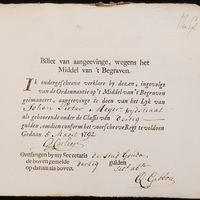 Billet van aangeevinge, wegens het
Middel van 't Begraven.
Ik ondergeschreve verklare by dezen, ingevolge
van de Ordonnantie op 't Middel van 't Begraven
geëmaneert, aangeevinge te doen van het Lyk van
Johan Pieter Meyer
als gehoorende onder de Classis van dertig
gulden, om dien conform het voorschreve Regt te voldoen
Gedaan 8 1792
Ontfangen by my Secretaris der stad Gouda
de boven gemelde dertig gulden
op datum als boven.